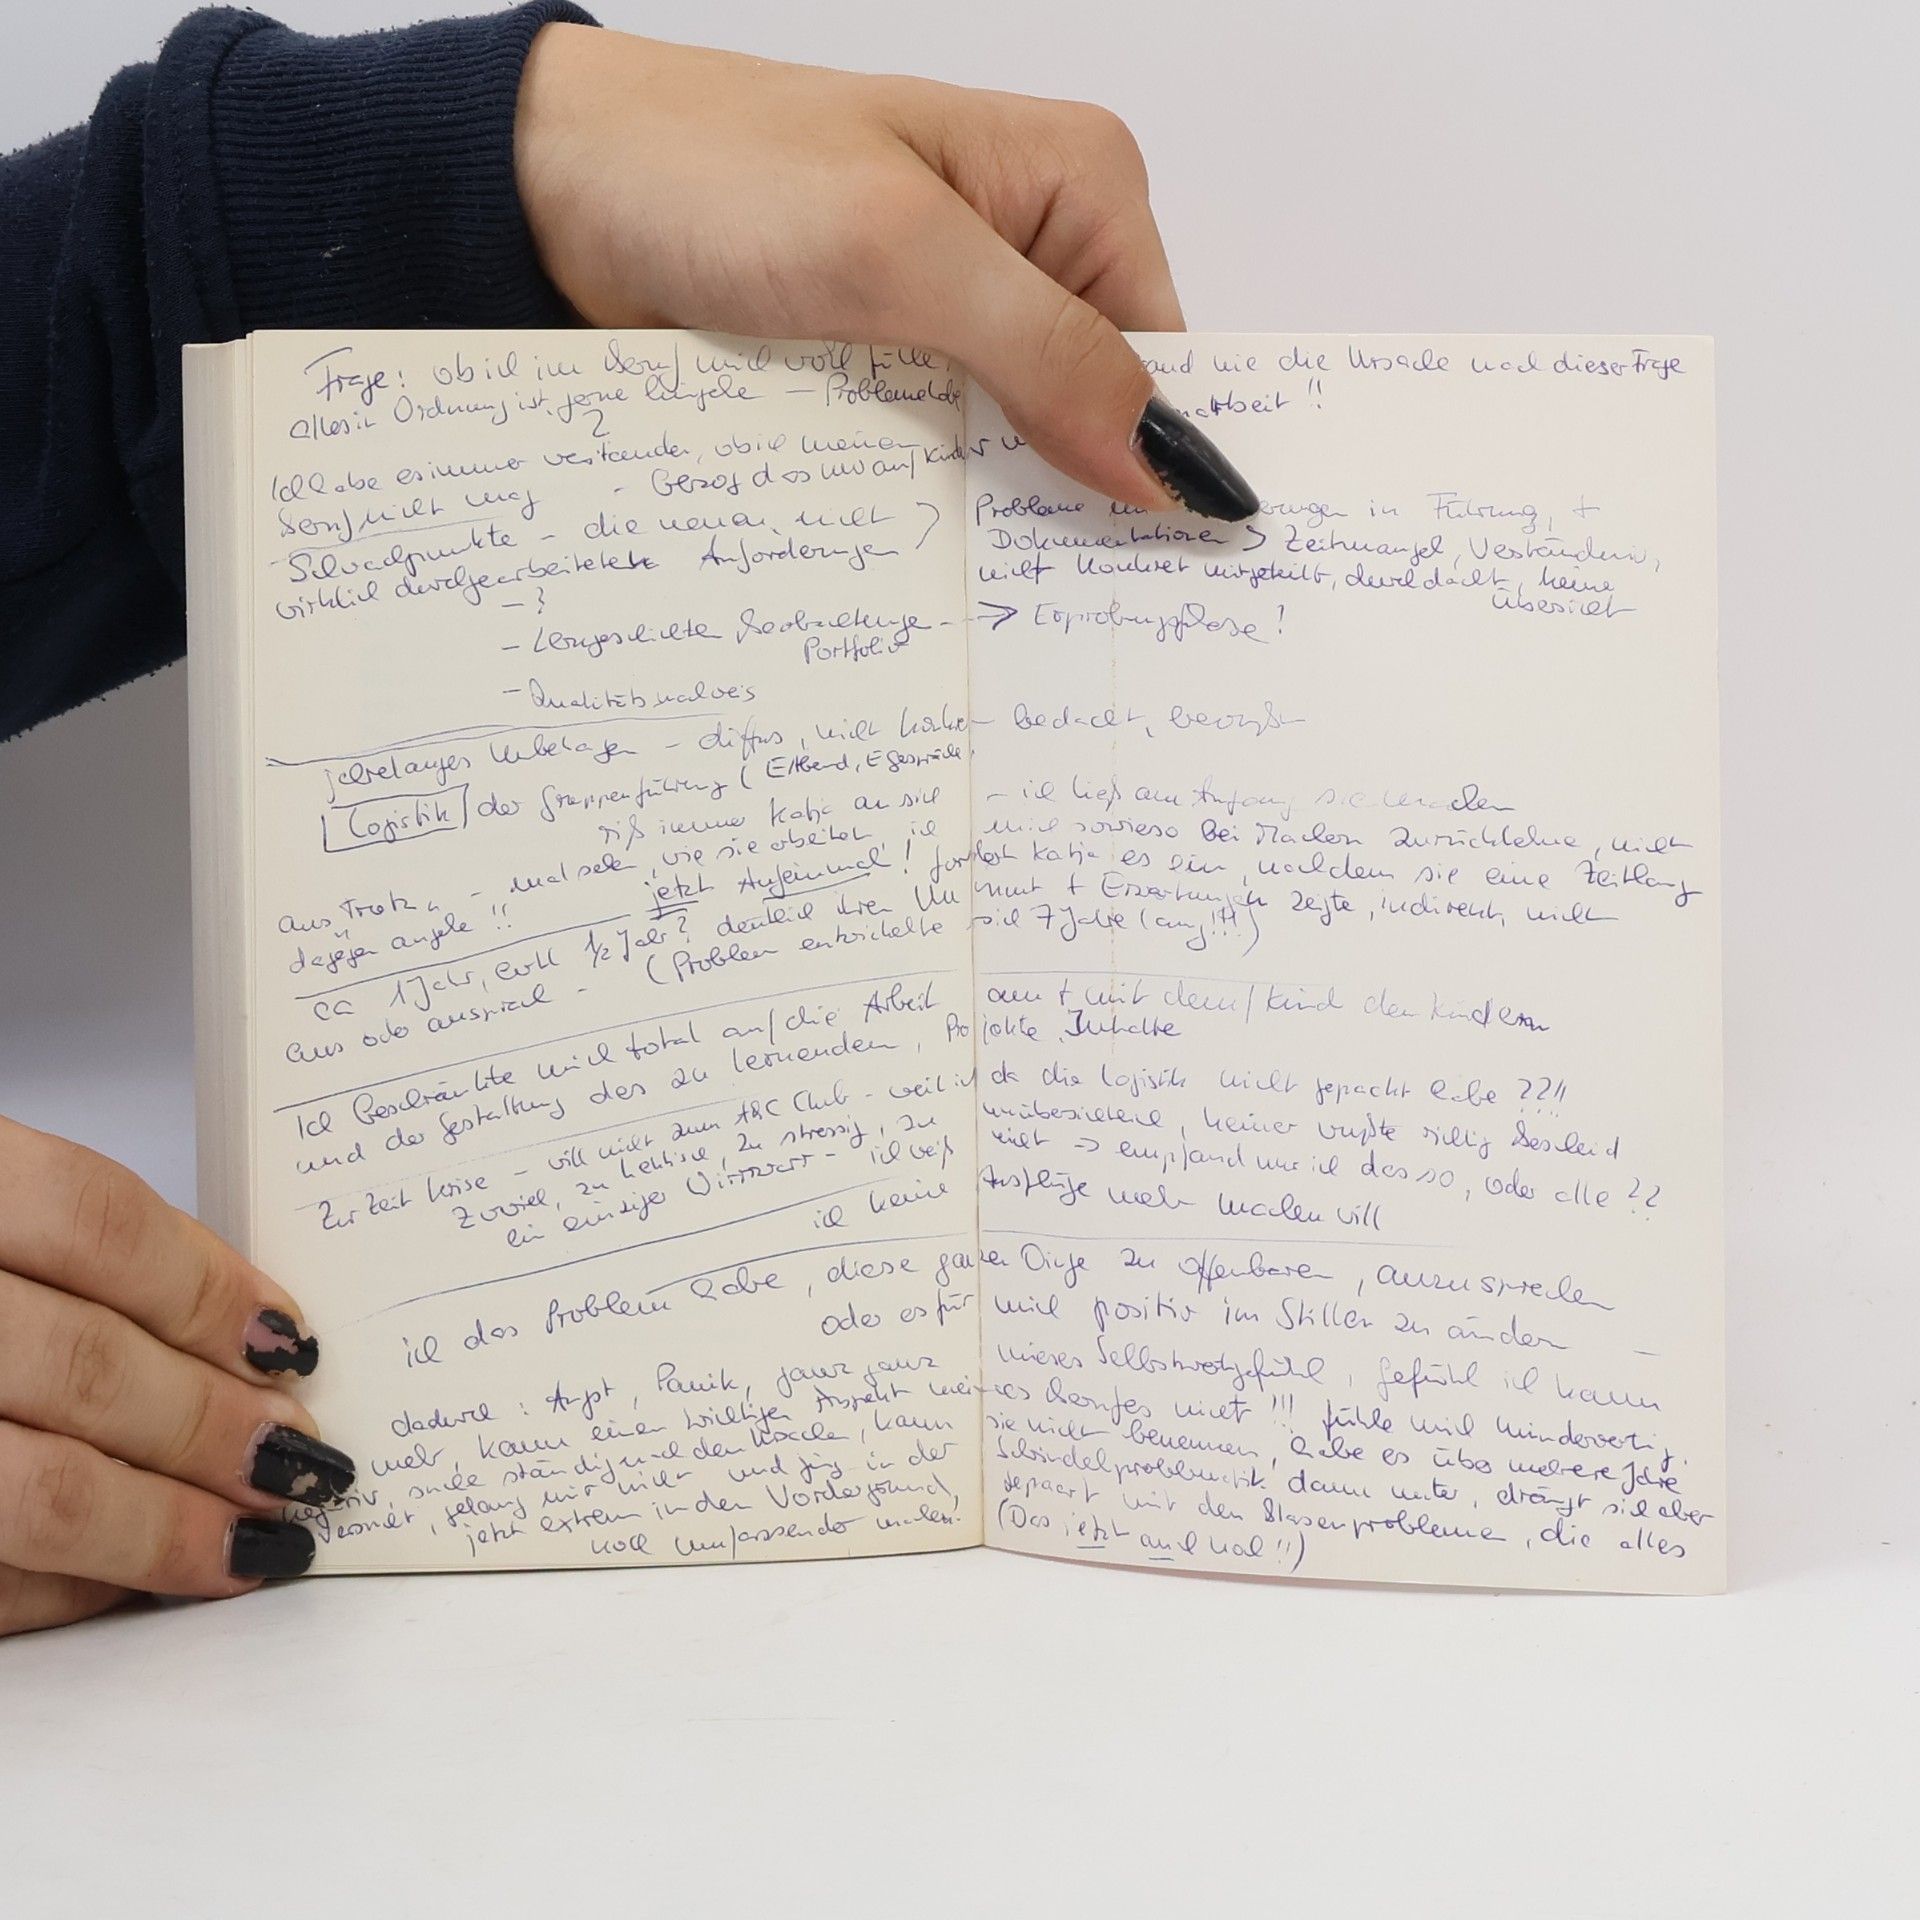 Frage: ob ich im Beruf mich wohl fühle, and nie die Ursache nach dieser Frage
alles in Ordnung ist, gerne hingehe — Probleme habe arbeit !!
?
Ich habe es immer verstanden, ob ich meinen
Beruf nicht mag - bezog das nur auf Kinder
Schwachpunkte - die neuen, nicht Probleme in Führung, +
wirklich durchgearbeiteten Anforderungen Dokumentationen > Zeitmangel, Verständnis,
nicht konkret mitgeteilt, durchdacht, keine
Übersicht
- ?
- Lerngeschichten Beobachtungen --> Erprobungsphase!
Portfolio
- Qualitätsnachweis
jahrelanges Unbehagen - diffus, nicht bedacht, bewußt
Logistik der Gruppenführung (EAbend, EGespräche,
riß immer Katja an sich - ich ließ am Anfang sie machen
aus Trotz - mal sehen, wie sie arbeitet, ich mich sowieso bei Machen zurücklehne, nicht
dagegen angehe !! jetzt Aufeinmal! fordert Katja es ein, nachdem sie eine Zeitlang
ca 1 Jahr, evtl 1/2 Jahr? deutlich ihren Unmut + Erwartungen zeigte, indirekt, nicht
aus oder ansprach - (Problem entwickelte sich 7 Jahre lang!!!)
Ich beschränkte mich total auf die Arbeit am + mit dem/Kind den Kindern
und der Gestaltung des zu lernenden, Projekte, Inhalte
Zur Zeit Krise - will nicht zum ABC Club - weil ich da die Logistik nicht gepackt habe ??!!
zuviel, zu hektisch, zu stressig, zu unübersichtlich, keiner wußte richtig Bescheid
ein einziger Wirrwarr - ich weiß nicht => empfand nur ich das so, oder alle ??
ich keine Ausflüge mehr machen will
ich das Problem habe, diese ganzen Dinge zu offenbaren, anzusprechen
oder es für mich positiv im Stillen zu ändern —
dadurch: Angst, Panik, ganz ganz mieses Selbstwertgefühl, Gefühl ich kann
mehr, kann einen wichtigen Aspekt meines Berufes nicht !!! fühle mich minderwertig,
suche ständig nach den Ursachen, kann sie nicht benennen, habe es über mehrere Jahre
versucht, gelang mir nicht und ging in der Schwindelproblematik dann unter, drängt sich aber
jetzt extrem in den Vordergrund, gepaart mit den Blasenproblemen, die alles
noch umfassender machen. (Das jetzt auch noch!!)